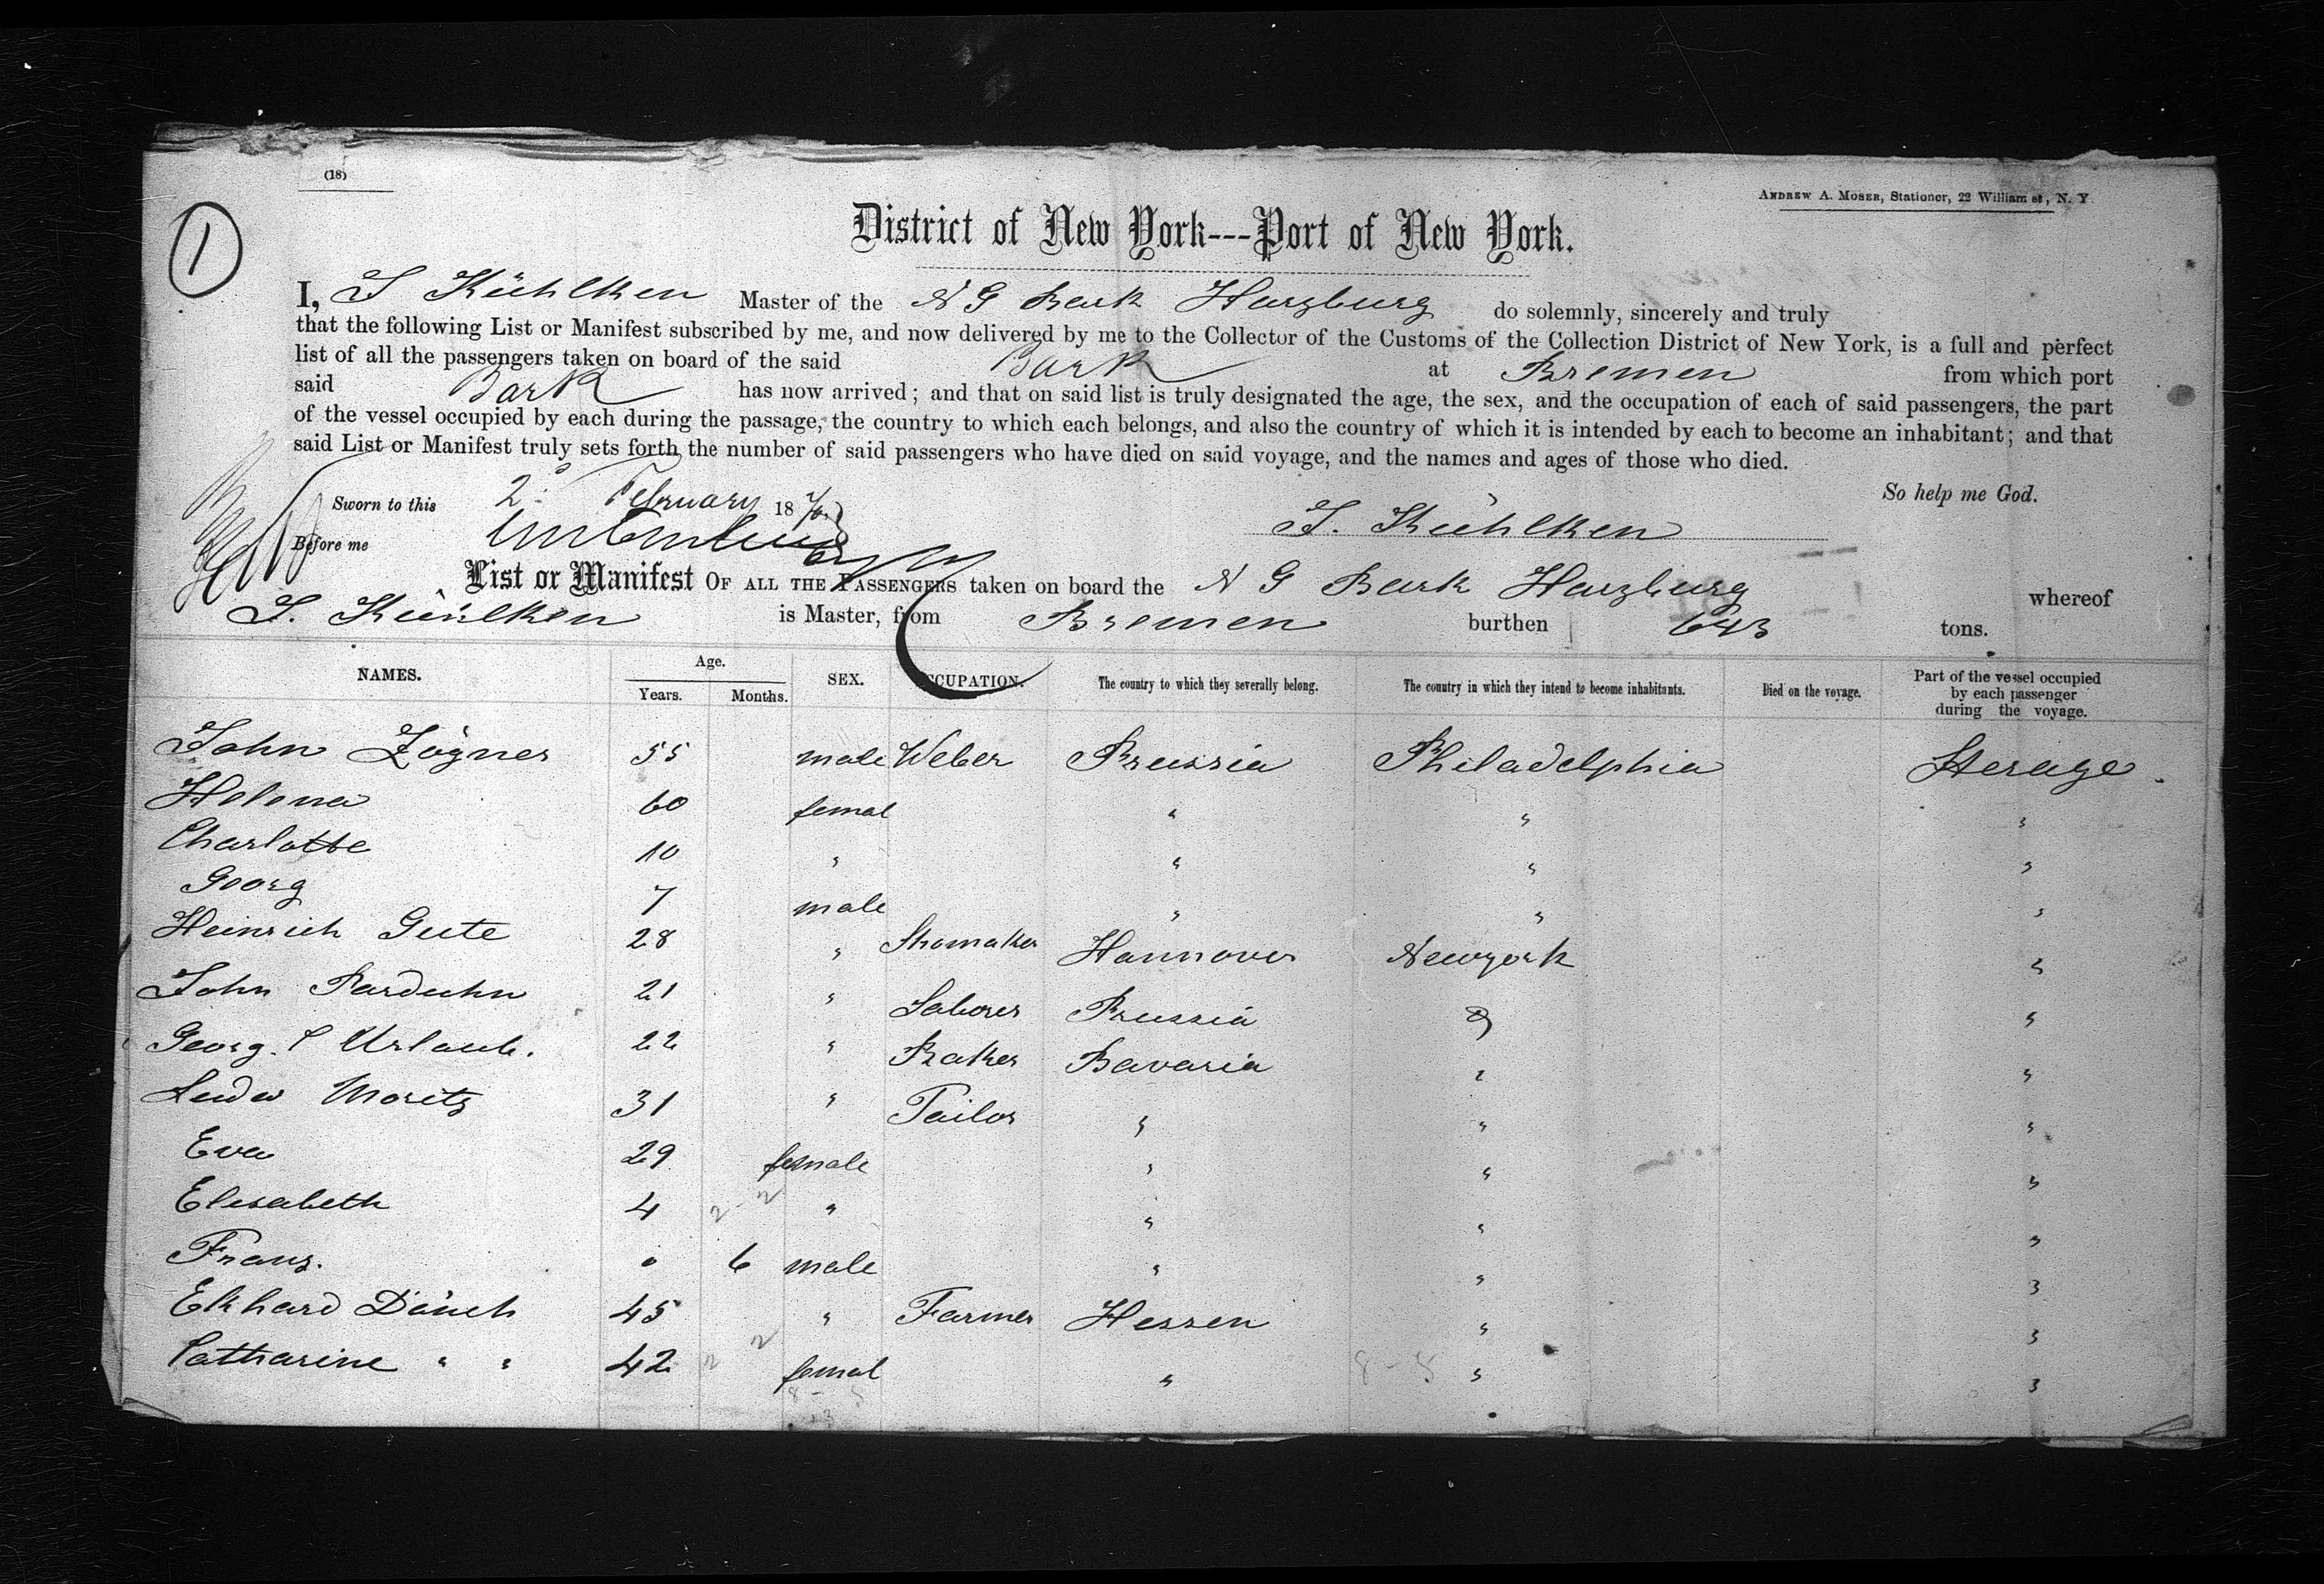 (18)
ANDREW A. MOSER, Stationer, 22 William st, N. Y
1
District of New York---Port of New York.
I, J Kühlken Master of the N G Bark Harzburg do solemnly, sincerely and truly
that the following List or Manifest subscribed by me, and now delivered by me to the Collector of the Customs of the Collection District of New York, is a full and perfect
list of all the passengers taken on board of the said Bark at Bremen from which port
said Bark has now arrived; and that on said list is truly designated the age, the sex, and the occupation of each of said passengers, the part
of the vessel occupied by each during the passage, the country to which each belongs, and also the country of which it is intended by each to become an inhabitant; and that
said List or Manifest truly sets forth the number of said passengers who have died on said voyage, and the names and ages of those who died.
So help me God.
Sworn to this 2 February 187
J. Kühlken
Before me
List or Manifest OF ALL THE PASSENGERS taken on board the N G Bark Harzburg whereof
J. Kühlken is Master, from Bremen burthen 643 tons.
NAMES. Age. Years. Months. SEX. OCCUPATION. The country to which they severally belong. The country in which they intend to become inhabitants. Died on the voyage. Part of the vessel occupied by each passenger during the voyage.
John Zögner 55 male Weber Prussia Philadelphia Sterage
Helena 60 femal " " "
Charlotte 10 " " " "
Georg 7 male " " "
Heinrich Gute 28 " Shomaker Hannover Newyork "
John Parduhn 21 " Laborer Prussia " "
Georg. Urlaub. 22 " Baker Bavaria " "
Ludw Moritz 31 " Tailor " " "
Eva 29 female " " "
Elisabeth 4 " " " "
Franz. 0 6 male " " "
Ekhard Dänch 45 " Farmer Hessen " "
Catharine " " 42 femal " " "